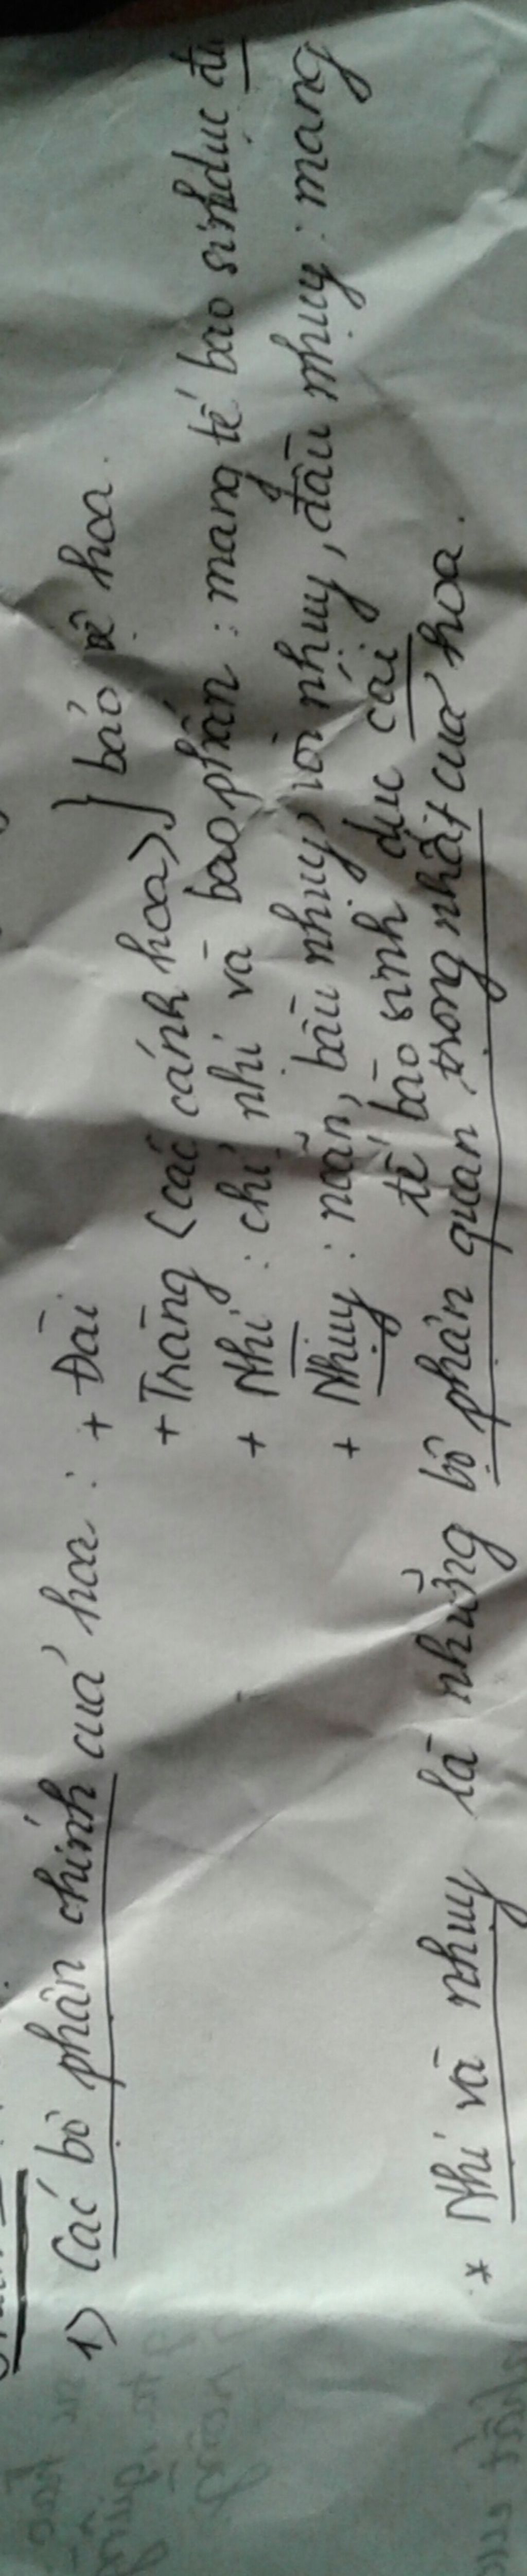 1) Các bộ phận chính của hoa : + Đài
+ Tràng (các cánh hoa) } bảo vệ hoa.
+ Nhị : chỉ nhị và bao phấn : mang tế bào sinh dục đực
+ Nhụy : noãn, bầu nhụy, vòi nhụy, đầu nhụy : mang
tế bào sinh dục cái
* Nhị và nhụy là những bộ phận quan trọng nhất của hoa.